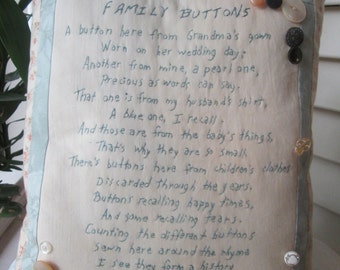 FAMILY BUTTONS
A button here from Grandma's gown
Worn on her wedding day;
Another from mine, a pearl one,
Precious as words can say.
That one is from my husband's shirt,
A blue one, I recall,
And those are from the baby's things,
That's why they are so small.
There's buttons here from children's clothes
Discarded through the years.
Buttons recalling happy times,
And some recalling tears.
Counting the different buttons
Sewn here around the rhyme
I see they form a history